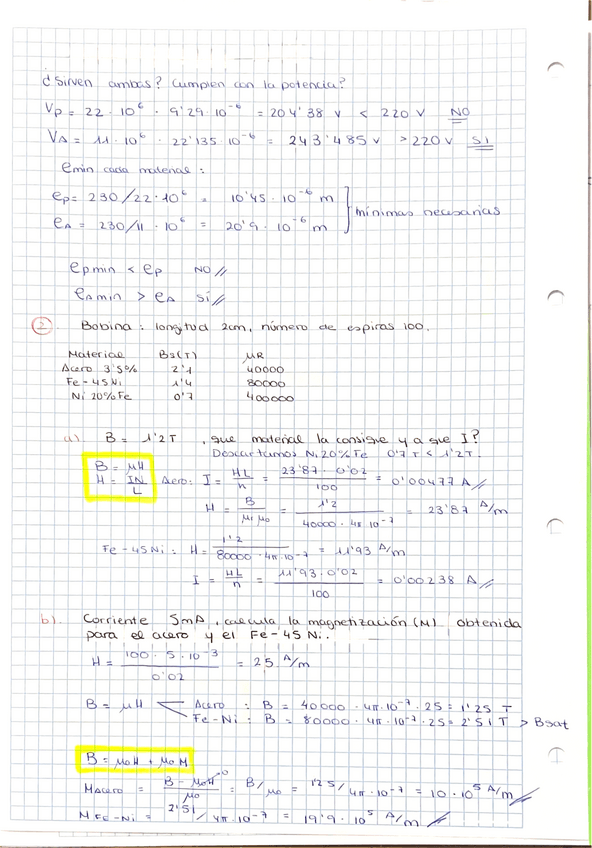 ¿Sirven ambas? Cumplen con la potencia?
Vp = 22 · 10⁶ · 9'29 · 10⁻⁶ = 204'38 V < 220 V NO
VA = 11 · 10⁶ · 22'135 · 10⁻⁶ = 243'485 V > 220 V SI
emin cada material :
ep = 230/22 · 10⁶ = 10'45 · 10⁻⁶ m
eA = 230/11 · 10⁶ = 20'9 · 10⁻⁶ m
mínimas necesarias
ep min < ep NO //
eA min > eA SÍ //
2. Bobina : longitud 2cm, número de espiras 100.
Material Bs(T) μR
Acero 3'5% 2'1 40000
Fe-45Ni 1'4 80000
Ni 20%Fe 0'7 400000
a) B = 1'2 T , que material la consigue y a que I?
Descartamos Ni 20%Fe 0'7 T < 1'2T.
B = μH
H = IN/L
Acero: I = HL/n = 23'87 · 0'02/100 = 0'00477 A //
H = B/μr μ0 = 1'2/40000 · 4π 10⁻⁷ = 23'87 A/m
Fe-45Ni : H = 1'2/80000 · 4π · 10⁻⁷ = 11'93 A/m
I = HL/n = 11'93 · 0'02/100 = 0'00238 A //
b). Corriente 5mA, calcula la magnetización (M) obtenida
para el acero y el Fe-45 Ni.
H = 100 · 5 · 10⁻³/0'02 = 25 A/m
B = μH
Acero : B = 40000 · 4π · 10⁻⁷ · 25 = 1'25 T
Fe-Ni : B = 80000 · 4π · 10⁻⁷ · 25 = 2'51 T > Bsat
B = μ0H + μ0M
MAcero = B - μ0H⁰/μ0 = B/μ0 = 1'25/4π · 10⁻⁷ = 10 · 10⁵ A/m //
M Fe-Ni = 2'51/4π · 10⁻⁷ = 19'9 · 10⁵ A/m //